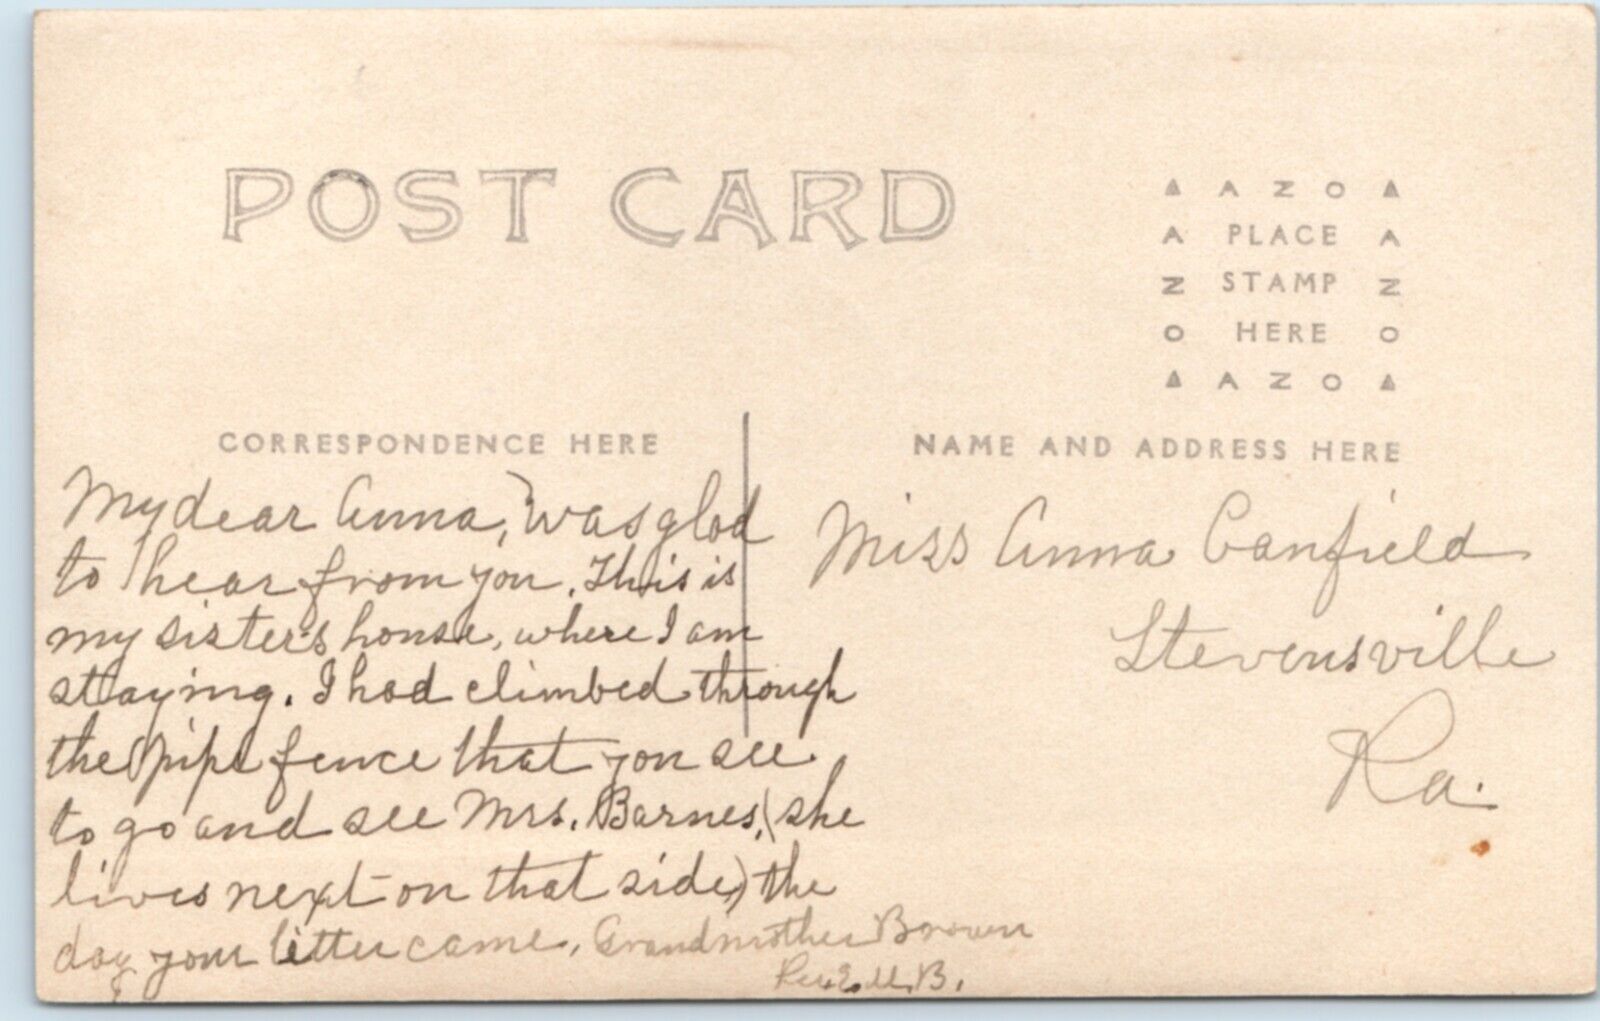 POST CARD
▲ A Z O ▲
A PLACE A
N STAMP N
O HERE O
▲ A Z O ▲
CORRESPONDENCE HERE
NAME AND ADDRESS HERE
My dear Anna, I was glad
to hear from you. This is
my sister's house, where I am
staying. I had climbed through
the pipe fence that you see
to go and see Mrs. Barnes, (she
lives next on that side,) the
day your letter came. Grandmother Brown
B.
Miss Anna Canfield
Stevensville
Pa.